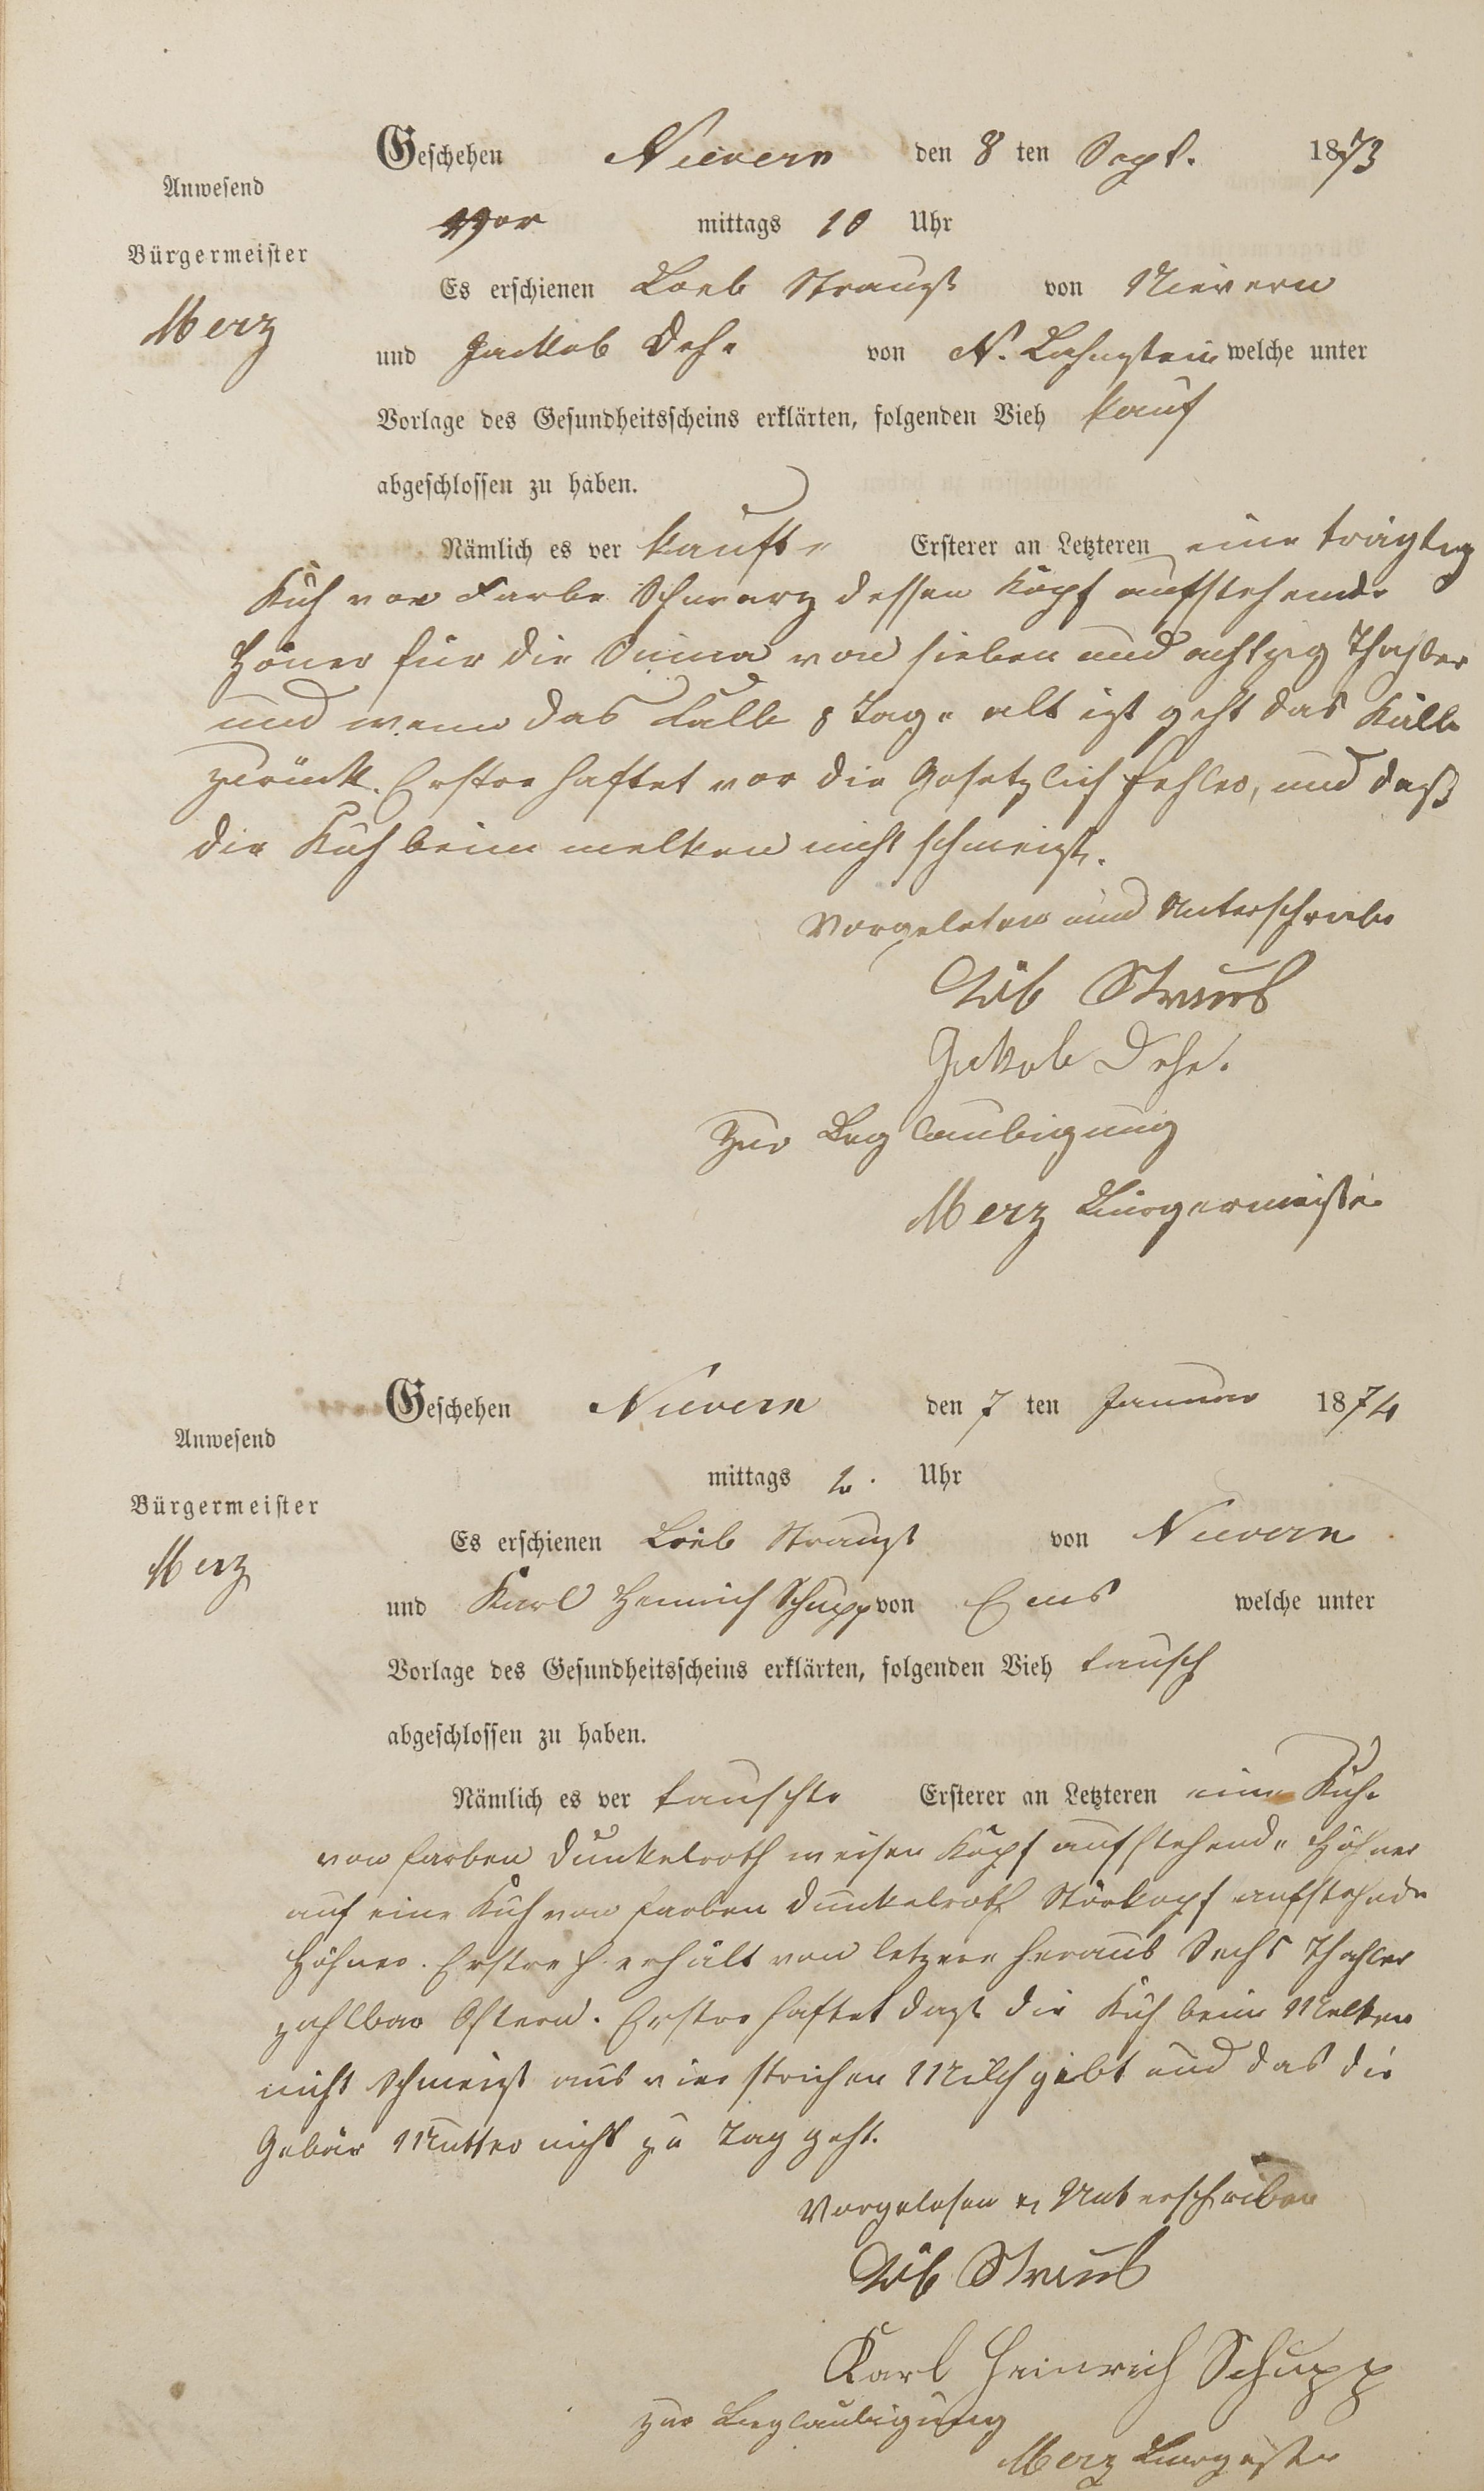 Geschehen Nievern den 8 ten Sept. 1873
Anwesend
vor mittags 10 Uhr
Bürgermeister
Es erschienen Loeb Straußß von Nievern
Merz
und Jackob Dehe von N. Lahnstein welche unter
Vorlage des Gesundheitsscheins erklärten, folgenden Vieh kauf
abgeschlossen zu haben.
Nämlich es ver kaufte Ersterer an Letzteren eine trägtig
Kuh von Farbe Schwarz dessen Kopf aufstehende
Höner für die Suma von sieben und achtzig Thahler
und wenn das Kalb 8 Tage alt ist geht das Kalb
zurück. Erstre haftet vor die Gesetzlich fehler, und daß
die Kuh beim melken nicht schmeißt.
Vorgelesen und Unterschrieben
Löb Straus
Jakob Dehe.
Zur Beglaubigung
Merz Bürgermeister
Geschehen Nievern den 7 ten Januar 1874
Anwesend
mittags 2. Uhr
Bürgermeister
Es erschienen Loeb Strauß von Nievern
Merz
und Karl Heinrich Schupp von Ems welche unter
Vorlage des Gesundheitsscheins erklärten, folgenden Vieh tausch
abgeschlossen zu haben.
Nämlich es ver tauschte Ersterer an Letzteren eine Kuhe
von farben dunkelroth weisen Kopf aufstehende Höhner
auf eine Kuh von farben dunkelroth Störkopf aufstehnde
Höhner. Erstre erhält von letzere heraus Sechs Thahler
zahlbar Ostern. Erstre haftet daß die Kuh beim Melken
nicht Schmeißt aus vier strichen Milch gibt und das die
Gebär Mutter nicht zu Tag geht.
Vorgelesen & Unterschrieben
Löb Straus
Karl Heinrich Schupp
zur Beglaubigung
Merz Bürgmstr